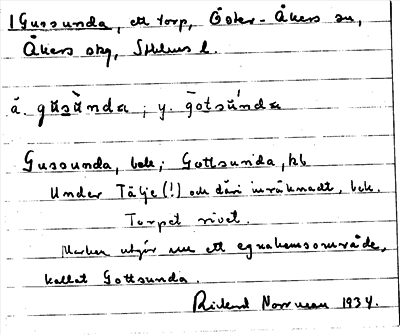 Gussunda, ett torp, Öster-Åkers sn,
Åkers skg, Sthlms l.
ä. gu̇sùnda ; y. gotsúnda
Gussunda, bek; Gottsunda, hb
Under Tälje (!) och däri inräknadt, bek.
Torpet rivet.
Marken utgör nu ett egnahemsområde,
kallat Gottsunda.
Rickard 1934.